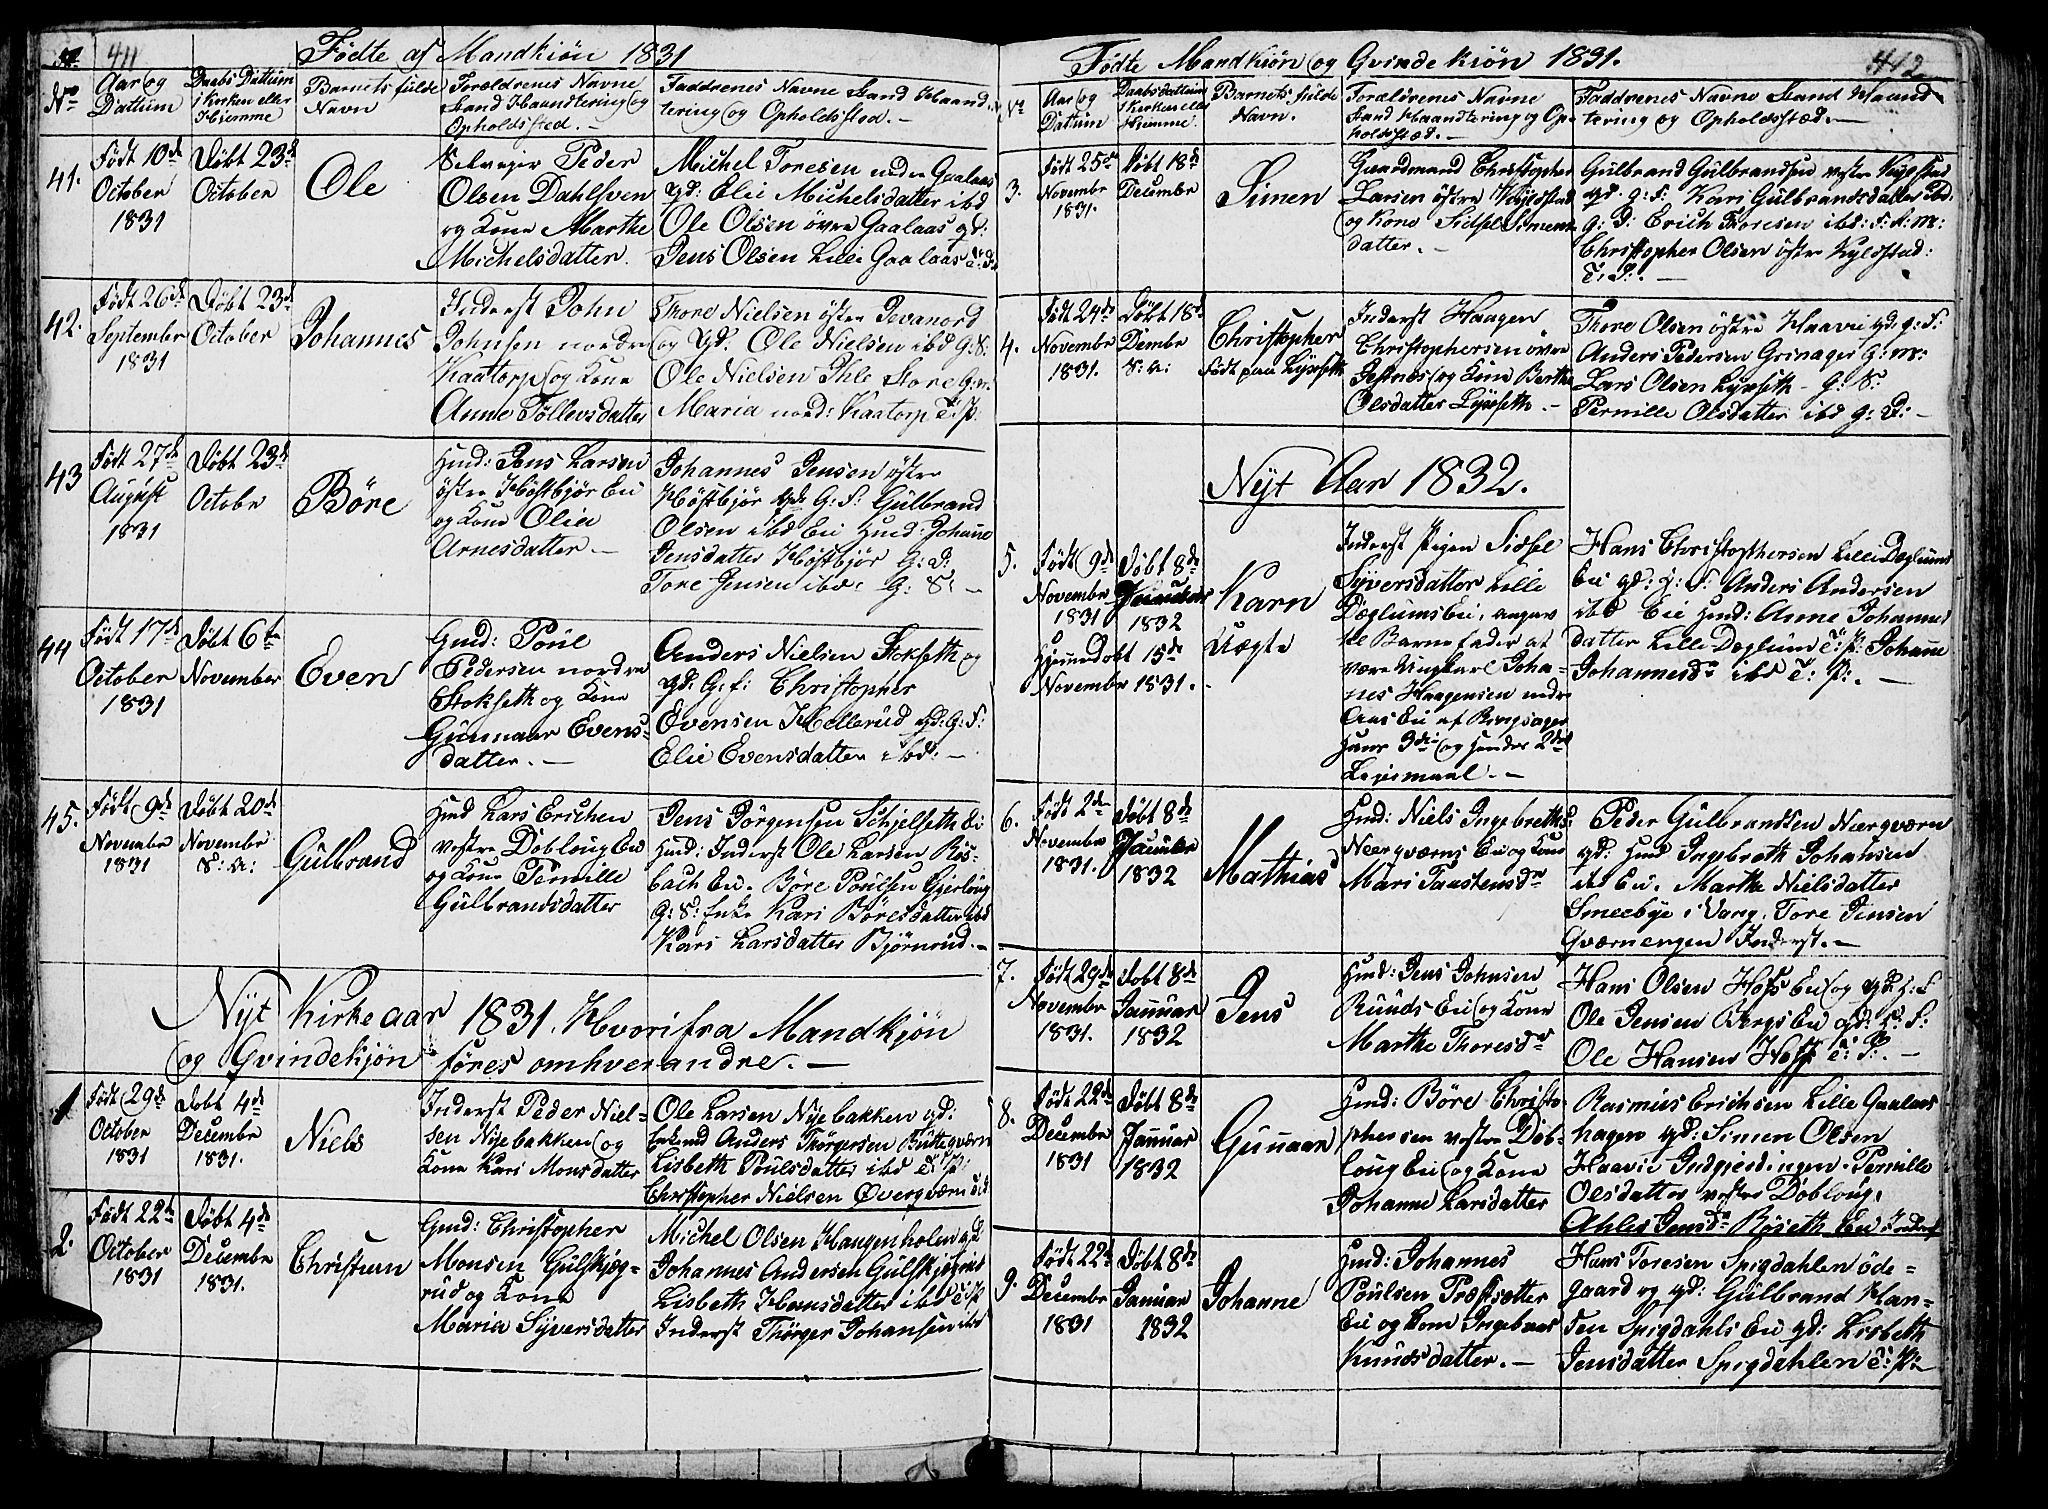 411
Fødte af Mandkiön 1831
No
Aar og
Dattum
Daabs Dattum
i Kirken eller
Hiemme
Barnets fulde
Navn
Forældrenes Navne
Stand Haandtering og
Opholdssted. -
Faddrenes Navne Stand Haand-
tering og Opholdssted. -
41.
Født 10de
October
1831
Döbt 23de
October
Ole
Selvejer Peder
Olsen Dahlsven
og Kone Marthe
Michelsdatter.
Michel Toresen nedre Gaalaas
gd: Elie Michelsdatter ibd
Ole Olsen övre Gaalaas gd:
Jens Olsen Lille Gaalaas
42.
Födt 26de
September
1831
Döbt 23de
October
Johannes
Inderst John
Johnsen nordre
Kaatorp og Kone
Anne Tollevsdatter
Thore Nielsen östre Jevanord
og gd. Ole Nielsen ibd G: S:
Ole Nielsen Ihle Store G: m:
Maria nord: Kaatorp T: P:
43
Født 27de
August
1831
Döbt 23de
Octobr
Böre
Hmd: Jens Larsen
östre Höstbjör Eie
og Kone Olia
Arnesdatter -
Johannes Jensen östre
Höstbjör gd: G: S: Gulbrand
Olsen ibd Eie Hmd: Johanne
Jensdatter Höstbjör G: D:
Tore Jensen ibd: G: S: -
44
Födt 17de
October
1831
Döbt 6te
November
Even
Gmd: Poul
Pedersen nordre
Stokseth og Kone
Gunnaur Evens-
datter. -
Anders Nielsen Stokseth og
gd: G: f: Christopher
Evensen Hellerud gd: G: S:
Elie Evensdatter ibd: -
45.
Född 9de
Novembr
1831
Döbt 20de
Novembr
S: a:
Gulbrand
Hmd Lars Erichsen
vestre Dobloug Eie
og Kone Pernille
Gulbrandsdatter
Jens Jörgensen Schjelseth Ei
Hmd: Inderst Ole Larsen Ros-
bach Eie. Böre Poulsen Gjerlöug
G: S: Enke Kari Böresdatter ibd
Kari Larsdatter Björnrud. -
Nyt Kirke aar 1831. Hvorifra Mandkjön
og Qvindekjön føres omhverandre. -
1
Födt 29de
October
1831
Döbt 4de
Decembr
1831.
Niels
Inderst Peder Niel-
sen Nyebakken og
Kone Kari Monsdatter
Ole Larsen Nyebakken gd:
Enkemd Anders Thörgersen Butteqværn
Lisbeth Poulsdatter ibd T: P:
Christopher Nielsen Øverqværn
2.
Födt 22de
October
1831
Döbt 4de
Decembr
1831.
Christian
Gmd: Christopher
Monsen Gulskjæg-
rud og Kone
Maria Syversdatter
Michel Olsen Haugenholm gd:
Johannes Andersen Gulskjegrud
Lisbeth Hansdatter ibd T: P:
Inderst Thörger Johansen ibd
412
Fødte Mandkiön og Qvinde kiön 1831.
No
Aar og
Dattum
Daabsdattum
i Kirken eller
Hjemme.
Barnets fulde
Navn.
Forældrenes Navne
Stand Haandtering og Op-
holdssted. -
Faddrenes Navne Stand Haand-
tering og Opholdssted. -
3.
Født 25de
Novembr
1831.
Döbt 18de
Decembr
Simen
Gaardmand Christopher
Larsen östre Kyldstad
og Kone Sidsel Simens-
datter. -
Gulbrand Gulbrandsen vestre Kyldstad
gd. g: S: Kari Gulbrandsdatter ibd.
g: D: Erich Thoresen ibd:
Christopher Olsen östre Kyldstad:
T: P: -
4.
Födt 24de
Novembr
1831.
Döbt 18de
Dembr
S: a:
Christopher
Födt paa Lyseth
Inderst Haagen
Christophersen övre
Jesnæs og Kone Berthe
Olsdatter Lyseth. -
Thore Olsen östre Haavie gd. g: S:
Anders Pedersen Grinager G: m:
Lars Olsen Lyseth - G: S:
Pernille Olsdatter ibd g: D: -
Nyt Aar 1832.
5.
Född 9de
Novembr
1831
Hjemmedöbt 15de
Novembr 1831.
Döbt 8de
Januar
1832
Karn
Uægte
Inderst Pigen Sidsel
Syversdatter Lille
Dæglums Eie, angav
til Barnefader at
være Ungkarl Joha-
nes Haagensen nedre
Aas Eie af Ringsager
Hans 3die og Hendes 2det
Lejermaal. -
Hans Christophersen Lille Dæglums
Eie gd: g: S: Anders Andersen
ibd Eie Hmd: Anne Johannes
datter Lille Døglum T: P: Johanne
Johannesdr ibd T: P: -
6.
Födt 2den
Novembr
1831.
Döbt 8de
Januar
1832
Mathias
Hmd: Niels Ingebreths:
Nærqværns Eie og Kone
Mari Taastensdr
Peder Gulbrandsen Nærqværn
gd: Hmd Ingebreth Johansen
ibd Eie. Marthe Nielsdatter
Smeebye i Vang. Tore Jensen
Qværnengen Inderst. -
7.
Födt 29de
Novembr
1831.
Döbt 8de
Januar
1832
Jens
Hmd: Jens Johnsen
Ruuds Eie og Kone
Marthe Thoresdr
Hans Olsen Hofs Eie og gd: g: S
Ole Jensen Bergs Eie gd: g: S:
Ole Hansen Hoff T: P. -
8.
Födt 22de
Decembr
1831
Döbt 8de
Januar
1832
Gunaur
Hmd: Böre Christo-
phersen vestre Dob-
loug Eie og Kone
Johanne Larsdatter
Rasmus Erichsen Lille Gaalaas
hagen gd: Simen Olsen
Haavie Indgjerdingen. Pernille
Olsdatter vestre Dobloug,
Ahles Jensdr Röseth Eie Inderst
9.
Födt 22de
Decembr
1831
Döbt 8de
Januar
1832
Johanne
Hmd: Johannes
Poulsen Præstsætter
Eie og Kone Ingeborg
Knudsdatter. -
Hans Toresen Spigdahlen öde-
gaard og gd: Gulbrand Han-
sen Spigdahls Eie gd: Lisbeth
Jensdatter Spigdahlen T: P: